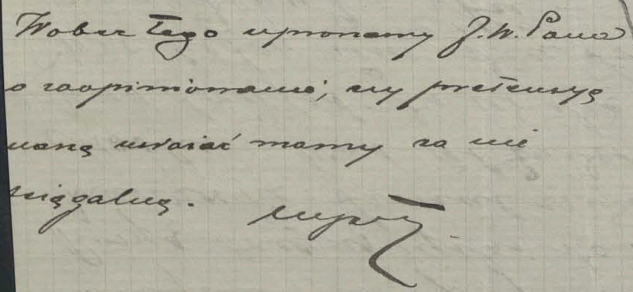 Wobec tego upraszamy J. W. Pana
o zaopiniowanie, czy pretensyę
naszą uważać mamy za nie
ściągalną.